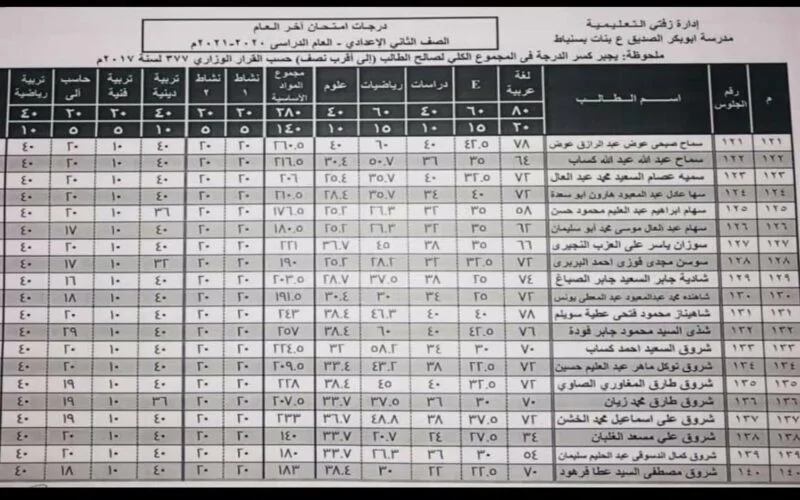 إدارة زفتي التعليمية
مدرسة ابوبكر الصديق ع بنات بسنباط
درجات امتحان آخر العام
الصف الثاني الإعدادي - العام الدراسى ٢٠٢٠-٢٠٢١م
ملحوظة: يجبر كسر الدرجة فى المجموع الكلي لصالح الطالب (إلى أقرب نصف) حسب القرار الوزاري ٣٧٧ لسنة ٢٠١٧م
م رقم الجلوس اسم الطالب لغة عربية E دراسات رياضيات علوم مجموع المواد الأساسية نشاط ١ نشاط ٢ تربية دينية تربية فنية حاسب آلى تربية رياضية
٨٠ ٦٠ ٤٠ ٦٠ ٤٠ ٢٨٠ ٢٠ ٢٠ ٤٠ ٢٠ ٢٠ ٤٠
٢٠ ١٥ ١٠ ١٥ ١٠ ١٤٠ ٥ ٥ ١٠ ٥ ٥ ١٠
١٢١ ١٢١ سماح صبحى عوض عبد الرازق عوض ٧٨ ٤٢.٥ ٤٠ ٦٠ ٤٠ ٢٦٠.٥ ٢٠ ٢٠ ٤٠ ١٠ ٢٠ ٤٠
١٢٢ ١٢٢ سماح عبد الله عبد الله كساب ٦٤ ٣٥ ٣٦ ٥٠.٧ ٣٠.٤ ٢١٦.٥ ٢٠ ٢٠ ٤٠ ١٠ ٢٠ ٤٠
١٢٣ ١٢٣ سميه عصام السعيد محمد عبد العال ٧٢ ٣٢.٥ ٤٠ ٣٥.٧ ٢٥.٤ ٢٠٦ ٢٠ ٢٠ ٤٠ ١٠ ٢٠ ٤٠
١٢٤ ١٢٤ سها عادل عبد المعبود هارون ابو سعدة ٧٢ ٤٠ ٣٤ ٣٥.٧ ٢٨.٤ ٢١٠.٥ ٢٠ ٢٠ ٤٠ ١٠ ٢٠ ٤٠
١٢٥ ١٢٥ سهام ابراهيم عبد العليم محمود حسن ٥٨ ٣٥ ٣٢ ٢٦.٣ ٢٥.٢ ١٧٦.٥ ٢٠ ٢٠ ٣٦ ١٠ ٢٠ ٤٠
١٢٦ ١٢٦ سهام عبد العال موسى محمد ابو سليمان ٦٢ ٣٥ ٣٢ ٢٦.٣ ٢٥.٢ ١٨٠.٥ ٢٠ ٢٠ ٤٠ ١٠ ١٧ ٤٠
١٢٧ ١٢٧ سوزان ياسر على العزب النجيرى ٦٦ ٣٥ ٣٨ ٤٥ ٣٦.٧ ٢٢١ ٢٠ ٢٠ ٤٠ ١٠ ٢٠ ٤٠
١٢٨ ١٢٨ سوسن مجدى فوزى احمد البربرى ٧٢ ٣٢.٥ ٣٢ ٢٨.٢ ٢٥.٢ ١٩٠ ٢٠ ٢٠ ٣٢ ١٠ ١٧ ٤٠
١٢٩ ١٢٩ شادية جابر السعيد جابر الصباغ ٧٤ ٢٥ ٣٨ ٣٧.٥ ٢٨.٧ ٢٠٣.٥ ٢٠ ٢٠ ٤٠ ١٠ ١٦ ٤٠
١٣٠ ١٣٠ شاهنده محمد عبدالمعبود عبد المعطى يونس ٧٢ ٢٥ ٣٤ ٣٠ ٣٠.٤ ١٩١.٥ ٢٠ ٢٠ ٤٠ ١٠ ١٨ ٤٠
١٣١ ١٣١ شاهيناز محمود فتحى عطية سويلم ٧٨ ٤٠ ٤٠ ٤٦.٣ ٣٨.٤ ٢٤٣ ٢٠ ٢٠ ٤٠ ١٠ ٢٠ ٤٠
١٣٢ ١٣٢ شذى السيد محمود جابر فودة ٧٦ ٤٢.٥ ٤٠ ٦٠ ٣٨.٤ ٢٥٧ ٢٠ ٢٠ ٤٠ ١٠ ٢٩ ٤٠
١٣٣ ١٣٣ شروق السعيد احمد كساب ٧٠ ٣٠ ٣٤ ٥٨.٢ ٣٢ ٢٢٤.٥ ٢٠ ٢٠ ٤٠ ١٠ ٢٠ ٤٠
١٣٤ ١٣٤ شروق توكل ماهر عبد العليم حسين ٧٢ ٢٢.٥ ٣٨ ٤٣.٢ ٣٣.٤ ٢٠٩.٥ ٢٠ ٢٠ ٤٠ ١٠ ٢٠ ٤٠
١٣٥ ١٣٥ شروق طارق المغاورى الصاوي ٧٢ ٣٢.٥ ٤٠ ٤٥ ٣٨.٤ ٢٢٨ ٢٠ ٢٠ ٤٠ ١٠ ١٩ ٤٠
١٣٦ ١٣٦ شروق طارق محمد زيان ٧٠ ٣٠ ٣٦ ٣٧.٥ ٣٣.٧ ٢٠٧.٥ ٢٠ ٢٠ ٣٦ ١٠ ١٩ ٤٠
١٣٧ ١٣٧ شروق على اسماعيل محمد الخشن ٧٢ ٣٧.٥ ٣٨ ٤٨.٨ ٣٦.٧ ٢٣٣ ٢٠ ٢٠ ٤٠ ١٠ ١٩ ٤٠
١٣٨ ١٣٨ شروق على مسعد الغلبان ٣٤ ٢٧.٥ ٢٤ ٢٠.٧ ٣٣.٧ ١٤٠ ٢٠ ٢٠ ٤٠ ١٠ ٢٠ ٤٠
١٣٩ ١٣٩ شروق كمال الدسوقى عبد الحليم سليمان ٥٤ ٣٠ ٣٦ ٢٦.٣ ٣٣.٧ ١٨٠ ٢٠ ٢٠ ٤٠ ١٠ ٢٠ ٤٠
١٤٠ ١٤٠ شروق مصطفى السيد عطا فرهود ٧٠ ٢٢.٥ ٢٢ ٣٠ ٣٨.٤ ١٨٣ ٢٠ ٢٠ ٤٠ ١٠ ١٨ ٤٠